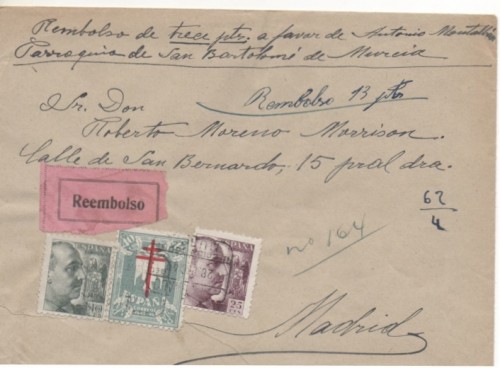 Rembolso de trece ptas. a favor de Antonio
Parroquia de San Bartolomé de Murcia
Sr. Don
Rembolso 13 pts
Roberto Moreno Morrison.
Calle de San Bernardo, 15 pral dra.
62
4
Reembolso
nº 164
ESPAÑA
ESPAÑA
25
Madrid